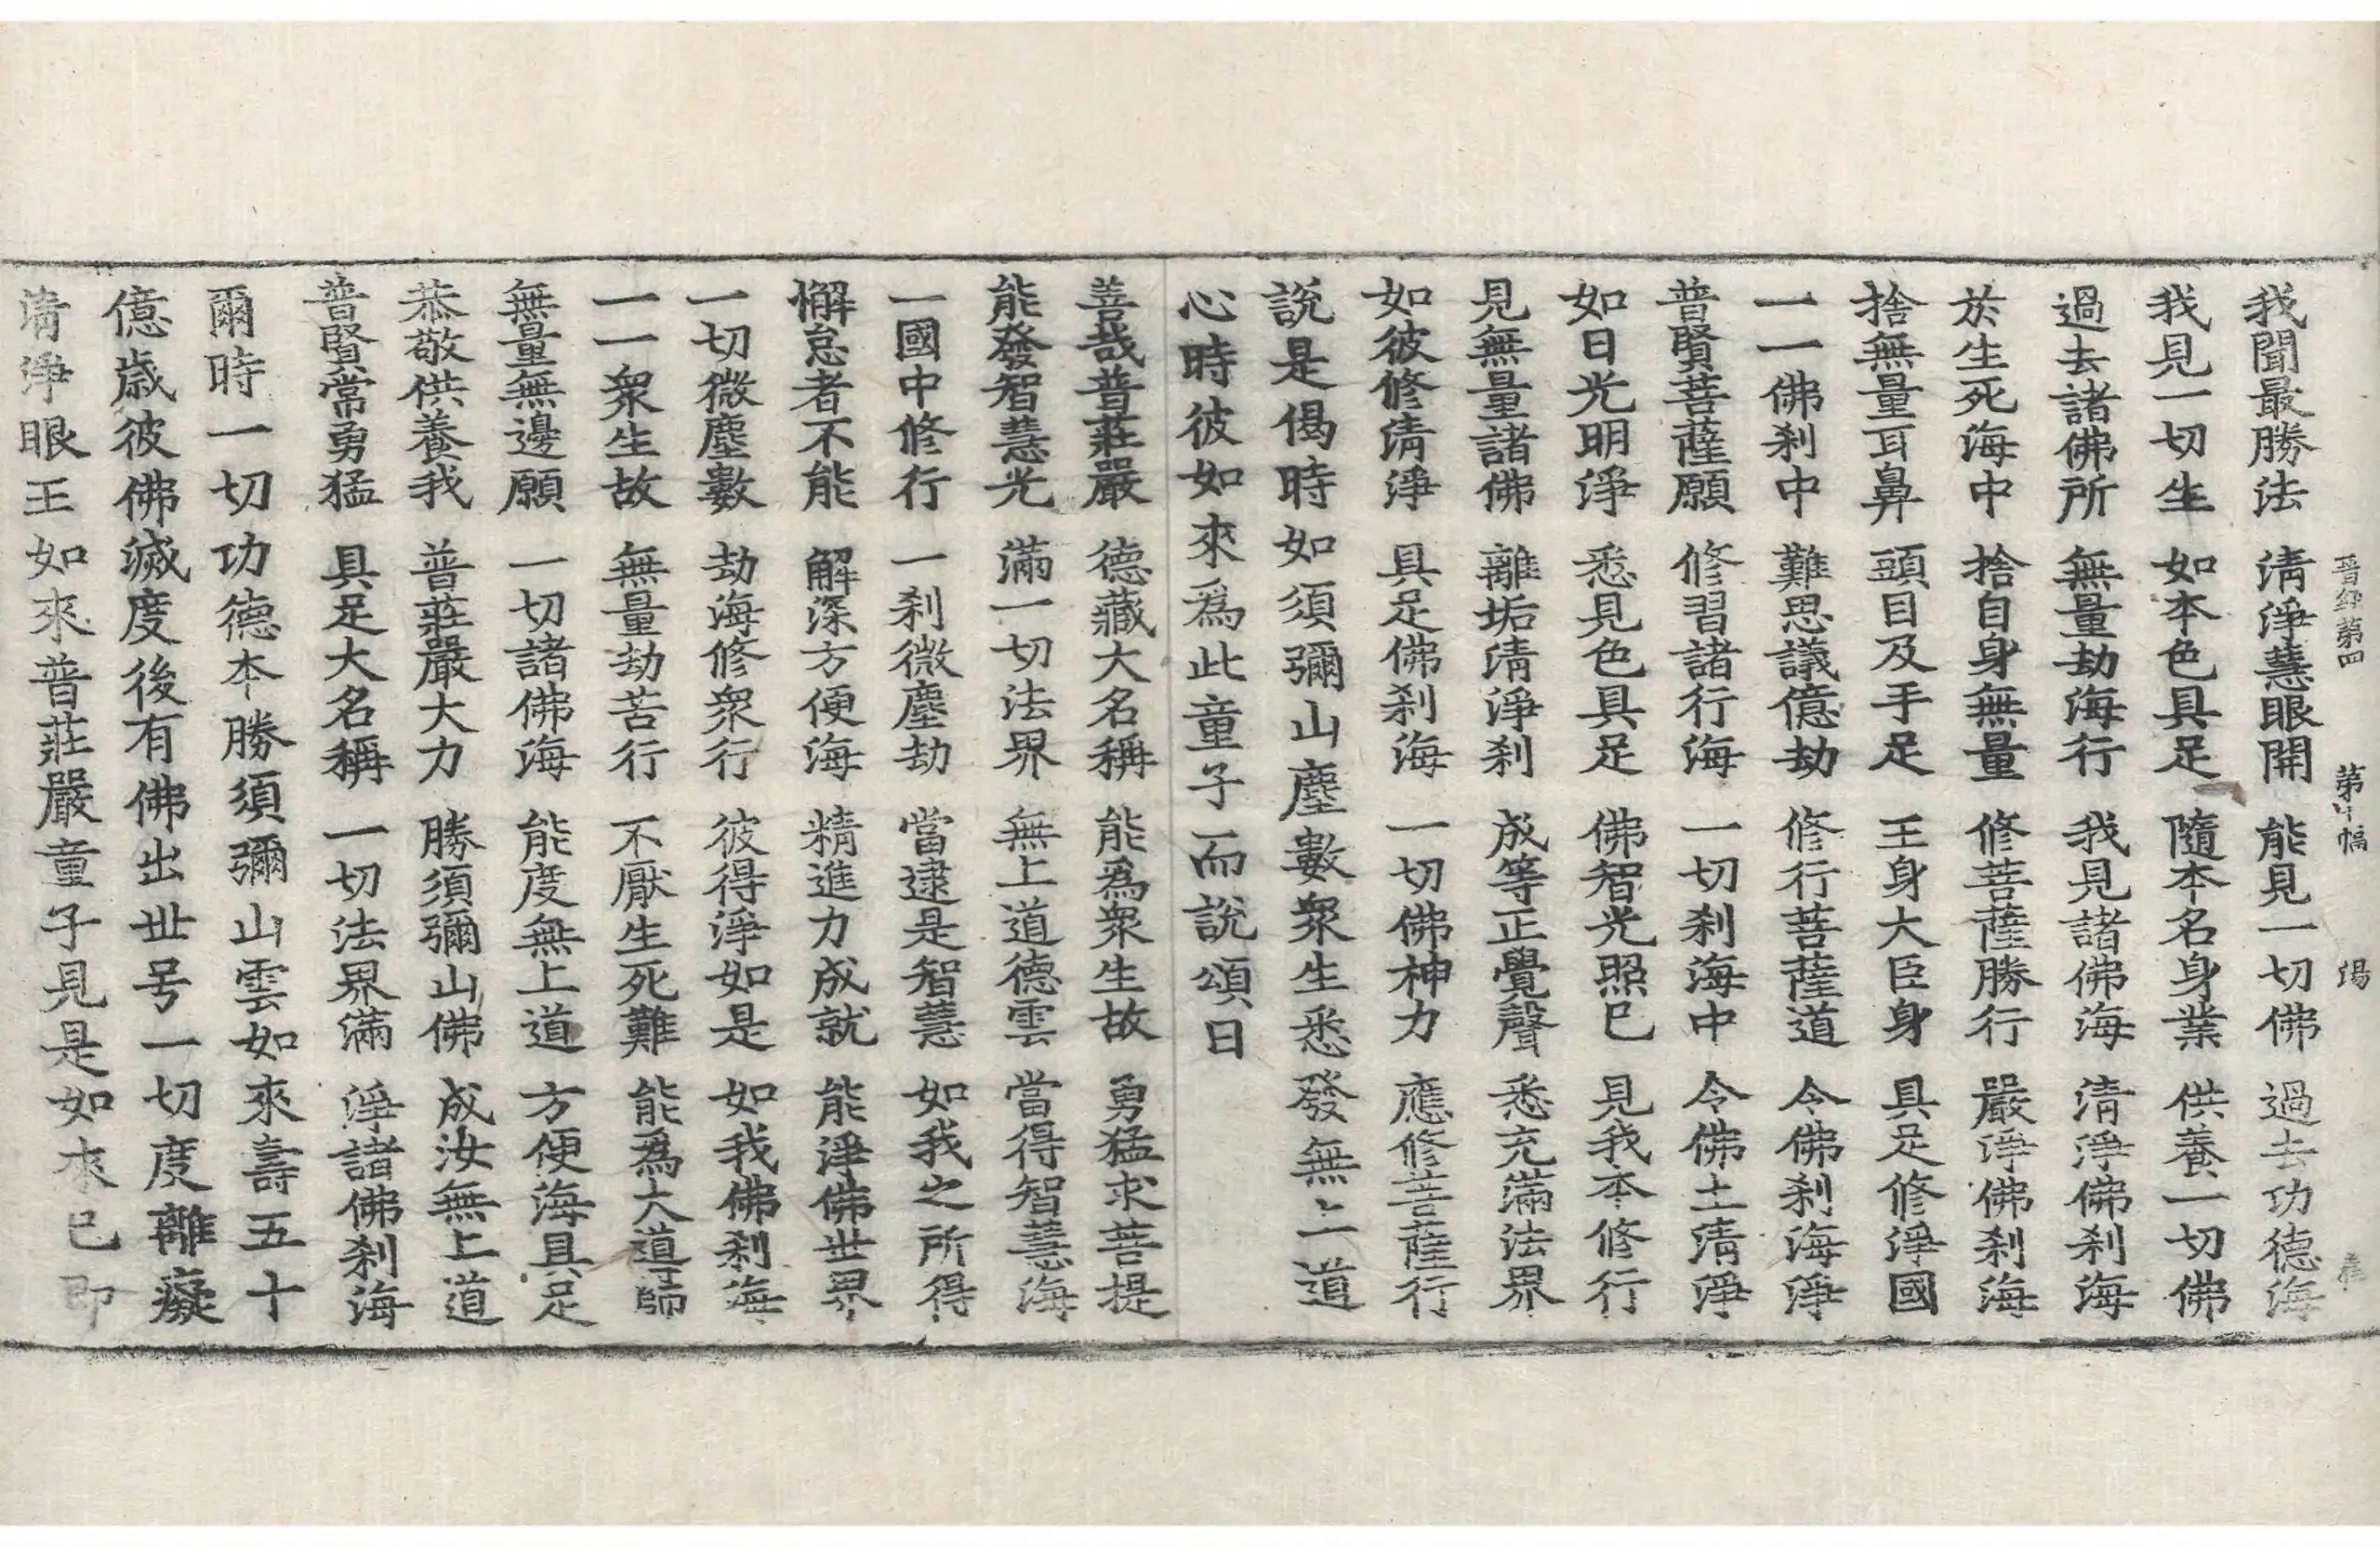 晉經第四 第十幅 湯
我聞最勝法 淸淨慧眼開 能見一切佛 過去功德海
我見一切生 如本色具足 隨本名身業 供養一切佛
過去諸佛所 無量劫海行 我見諸佛海 淸淨佛刹海
於生死海中 捨自身無量 修菩薩勝行 嚴淨佛刹海
捨無量耳鼻 頭目及手足 王身大臣身 具足修淨國
一一佛刹中 難思議億劫 修行菩薩道 令佛刹海淨
普賢菩薩願 修習諸行海 一切刹海中 令佛土淸淨
如日光明淨 悉見色具足 佛智光照已 見我本修行
見無量諸佛 離垢淸淨刹 成等正覺聲 悉充滿法界
如彼修淸淨 具足佛刹海 一切佛神力 應修菩薩行
說是偈時如須彌山塵數衆生悉發無上道
心時彼如來爲此童子而說頌曰
善哉普莊嚴 德藏大名稱 能爲衆生故 勇猛求菩提
能發智慧光 滿一切法界 無上道德雲 當得智慧海
一國中修行 一刹微塵劫 當逮是智慧 如我之所得
懈怠者不能 解深方便海 精進力成就 能淨佛世界
一切微塵數 劫海修衆行 彼得淨如是 如我佛刹海
一一衆生故 無量劫苦行 不厭生死難 能爲大道師
無量無邊願 一切諸佛海 能度無上道 方便海具足
恭敬供養我 普莊嚴大力 勝須彌山佛 成汝無上道
普賢常勇猛 具足大名稱 一切法界滿 淨諸佛刹海
爾時一切功德本勝須彌山雲如來壽五十
億歲彼佛滅度後有佛出世号一切度離癡
淸淨眼王如來普莊嚴童子見是如來已即